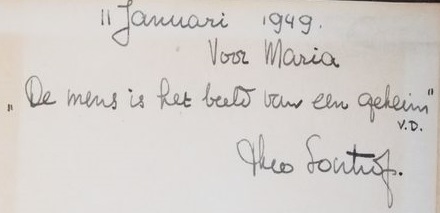 11 Januari 1949.
Voor Maria
„De mens is het beeld van een geheim"
V.D.
Theo Sontrop.